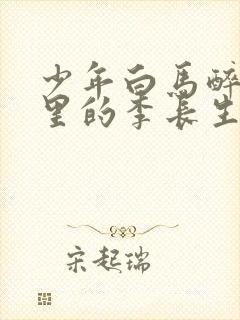 少年白馬醉
里的李長生
宋起瑞